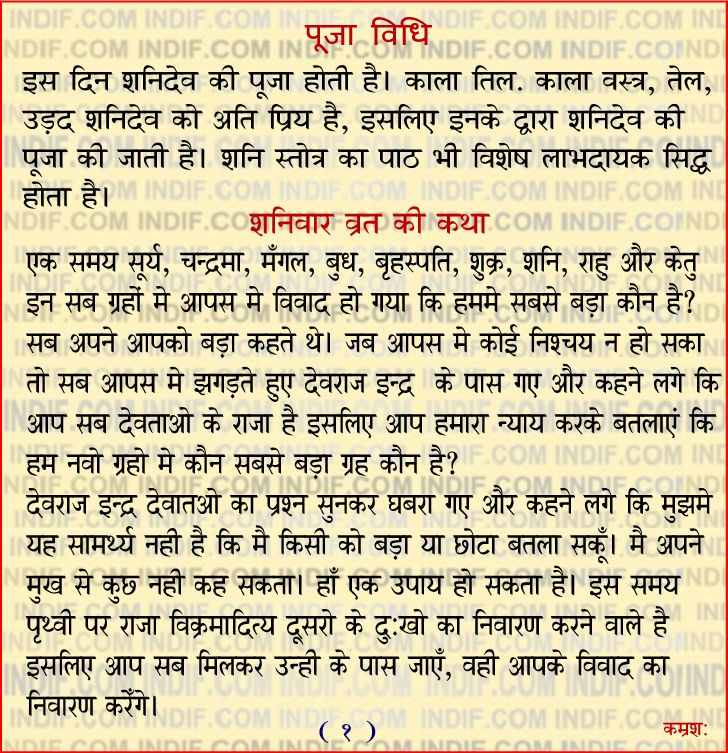 पूजा विधि
इस दिन शनिदेव की पूजा होती है। काला तिल. काला वस्त्र, तेल,
उड़द शनिदेव को अति प्रिय है, इसलिए इनके द्वारा शनिदेव की
पूजा की जाती है। शनि स्तोत्र का पाठ भी विशेष लाभदायक सिद्ध
होता है।
शनिवार व्रत की कथा
एक समय सूर्य, चन्द्रमा, मँगल, बुध, बृहस्पति, शुक्र, शनि, राहु और केतु
इन सब ग्रहों मे आपस मे विवाद हो गया कि हममे सबसे बड़ा कौन है?
सब अपने आपको बड़ा कहते थे। जब आपस मे कोई निश्चय न हो सका
तो सब आपस मे झगड़ते हुए देवराज इन्द्र के पास गए और कहने लगे कि
आप सब देवताओ के राजा है इसलिए आप हमारा न्याय करके बतलाएं कि
हम नवो ग्रहो मे कौन सबसे बड़ा ग्रह कौन है?
देवराज इन्द्र देवातओ का प्रश्न सुनकर घबरा गए और कहने लगे कि मुझमे
यह सामर्थ्य नही है कि मै किसी को बड़ा या छोटा बतला सकूँ। मै अपने
मुख से कुछ नही कह सकता। हाँ एक उपाय हो सकता है। इस समय
पृथ्वी पर राजा विक्रमादित्य दूसरो के दु:खो का निवारण करने वाले है
इसलिए आप सब मिलकर उन्ही के पास जाएँ, वही आपके विवाद का
निवारण करेंगे।
( १ )
कम्रश: